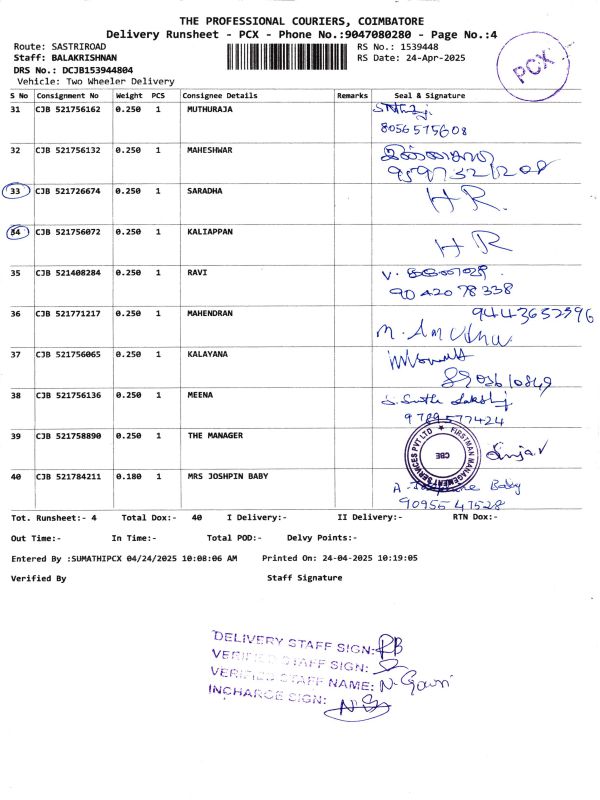 THE PROFESSIONAL COURIERS, COIMBATORE
Delivery Runsheet - PCX - Phone No.:9047080280 - Page No.:4
Route: SASTRIROAD RS No.: 1539448
Staff: BALAKRISHNAN RS Date: 24-Apr-2025
DRS No.: DCJB153944804
Vehicle: Two Wheeler Delivery
PCX
S No Consignment No Weight PCS Consignee Details Remarks Seal & Signature
31 CJB 521756162 0.250 1 MUTHURAJA
8056575608
32 CJB 521756132 0.250 1 MAHESHWAR
33 CJB 521726674 0.250 1 SARADHA HR.
34 CJB 521756072 0.250 1 KALIAPPAN HR
35 CJB 521408284 0.250 1 RAVI V.
90420 78338
36 CJB 521771217 0.250 1 MAHENDRAN 9443652596
M. Amuthu
37 CJB 521756065 0.250 1 KALAYANA
8903610849
38 CJB 521756136 0.250 1 MEENA
9789577424
39 CJB 521758890 0.250 1 THE MANAGER
FIRSTMAN MANAGEMENT SERVICES PVT LTD
CBE
40 CJB 521784211 0.180 1 MRS JOSHPIN BABY A. Josephine Baby
90955 47528
Tot. Runsheet:- 4 Total Dox:- 40 I Delivery:- II Delivery:- RTN Dox:-
Out Time:- In Time:- Total POD:- Delvy Points:-
Entered By :SUMATHIPCX 04/24/2025 10:08:06 AM Printed On: 24-04-2025 10:19:05
Verified By Staff Signature
DELIVERY STAFF SIGN: RB
VERIFIED STAFF SIGN:
VERIFIED STAFF NAME: N. Gowri
INCHARGE SIGN: